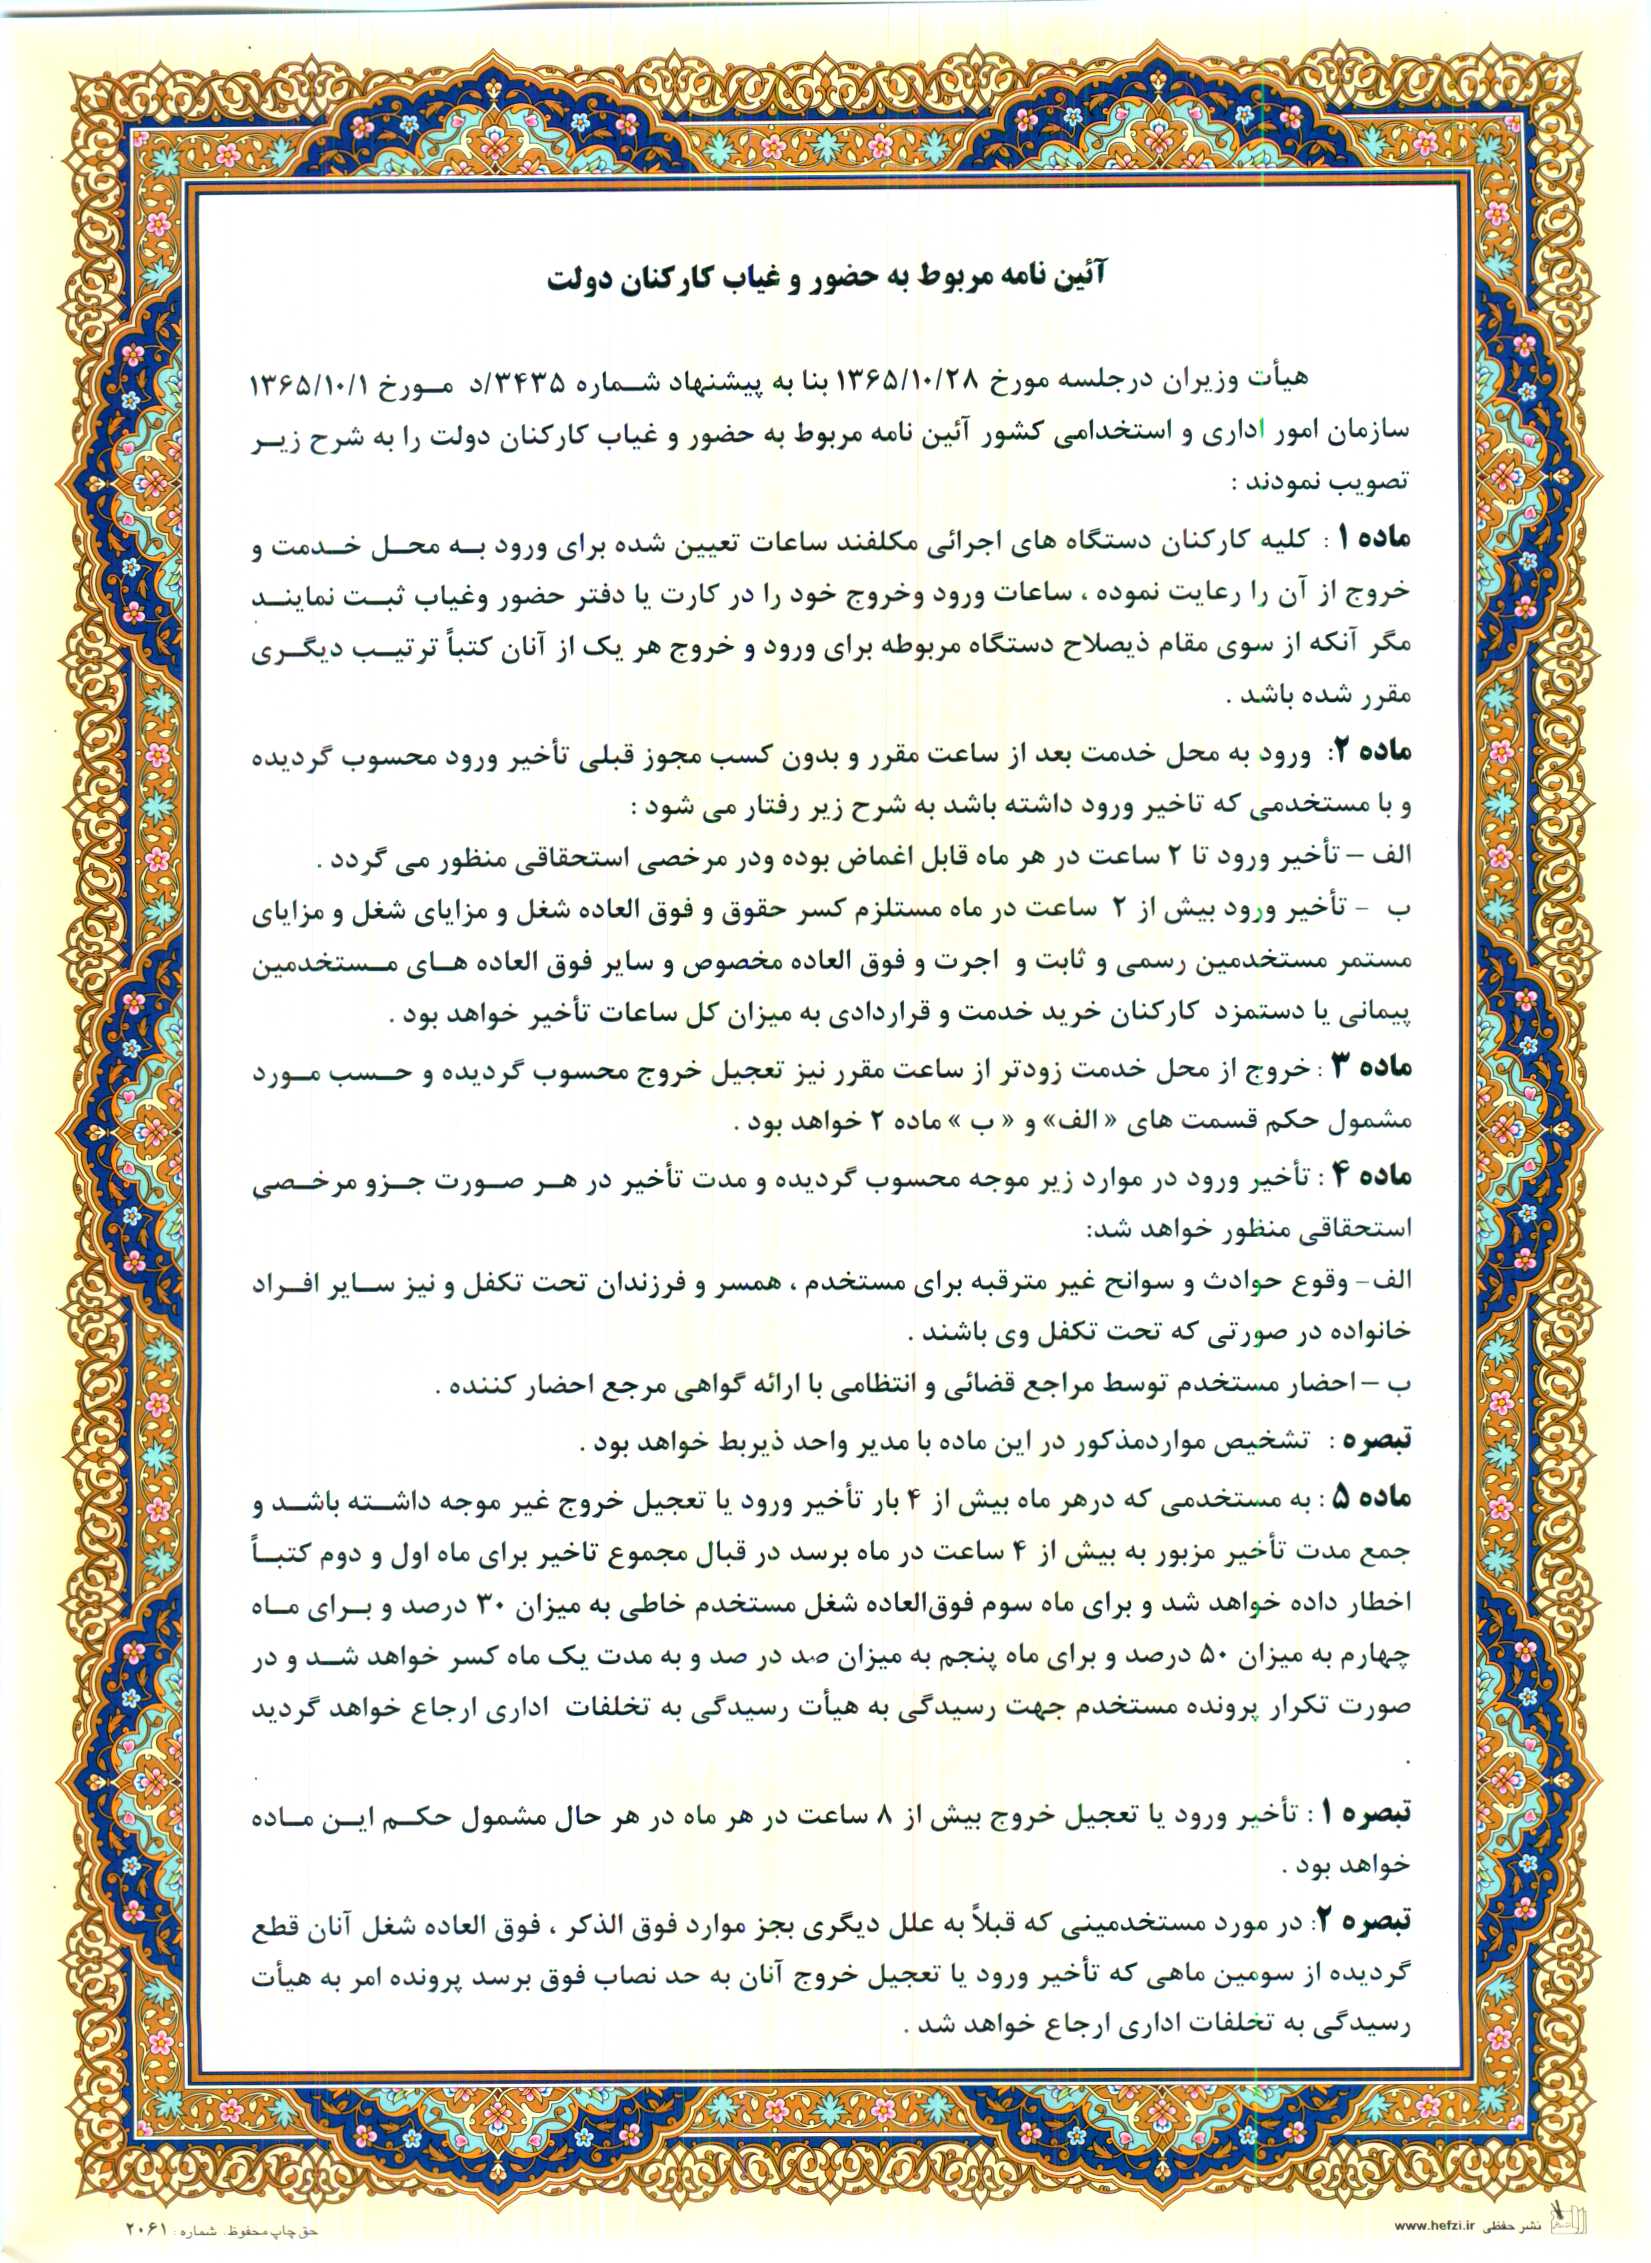 آئین نامه مربوط به حضور و غیاب کارکنان دولت
هیأت وزیران درجلسه مورخ ۱۳۶۵/۱۰/۲۸ بنا به پیشنهاد شـماره ۳۴۳۵/د مـورخ ۱۳۶۵/۱۰/۱
سازمان امور اداری و استخدامی کشور آئین نامه مربوط به حضور و غیاب کارکنان دولت را به شرح زیـر
تصویب نمودند :
ماده ۱ : کلیه کارکنان دستگاه های اجرائی مکلفند ساعات تعیین شده برای ورود بـه محـل خـدمت و
خروج از آن را رعایت نموده ، ساعات ورود وخروج خود را در کارت یا دفتر حضور وغیاب ثبـت نماینـد
مگر آنکه از سوی مقام ذیصلاح دستگاه مربوطه برای ورود و خروج هر یک از آنان کتباً ترتیـب دیگـری
مقرر شده باشد .
ماده ۲: ورود به محل خدمت بعد از ساعت مقرر و بدون کسب مجوز قبلی تأخیر ورود محسوب گردیده
و با مستخدمی که تاخیر ورود داشته باشد به شرح زیر رفتار می شود :
الف – تأخیر ورود تا ۲ ساعت در هر ماه قابل اغماض بوده ودر مرخصی استحقاقی منظور می گردد .
ب - تأخیر ورود بیش از ۲ ساعت در ماه مستلزم کسر حقوق و فوق العاده شغل و مزایای شغل و مزایای
مستمر مستخدمین رسمی و ثابت و اجرت و فوق العاده مخصوص و سایر فوق العاده هـای مـستخدمین
پیمانی یا دستمزد کارکنان خرید خدمت و قراردادی به میزان کل ساعات تأخیر خواهد بود .
ماده ۳ : خروج از محل خدمت زودتر از ساعت مقرر نیز تعجیل خروج محسوب گردیده و حـسب مـورد
مشمول حکم قسمت های « الف» و « ب » ماده ۲ خواهد بود .
ماده ۴ : تأخیر ورود در موارد زیر موجه محسوب گردیده و مدت تأخیر در هـر صـورت جـزو مرخـصی
استحقاقی منظور خواهد شد:
الف- وقوع حوادث و سوانح غیر مترقبه برای مستخدم ، همسر و فرزندان تحت تکفل و نیز سـایر افـراد
خانواده در صورتی که تحت تکفل وی باشند .
ب – احضار مستخدم توسط مراجع قضائی و انتظامی با ارائه گواهی مرجع احضار کننده .
تبصره : تشخیص مواردمذکور در این ماده با مدیر واحد ذیربط خواهد بود .
ماده ۵ : به مستخدمی که درهر ماه بیش از ۴ بار تأخیر ورود یا تعجیل خروج غیر موجه داشـته باشـد و
جمع مدت تأخیر مزبور به بیش از ۴ ساعت در ماه برسد در قبال مجموع تاخیر برای ماه اول و دوم کتبـاً
اخطار داده خواهد شد و برای ماه سوم فوق‌العاده شغل مستخدم خاطی به میزان ۳۰ درصد و بـرای مـاه
چهارم به میزان ۵۰ درصد و برای ماه پنجم به میزان صد در صد و به مدت یک ماه کسر خواهد شـد و در
صورت تکرار پرونده مستخدم جهت رسیدگی به هیأت رسیدگی به تخلفات اداری ارجاع خواهد گردید
.
تبصره ۱ : تأخیر ورود یا تعجیل خروج بیش از ۸ ساعت در هر ماه در هر حال مشمول حکـم ایـن مـاده
خواهد بود .
تبصره ۲: در مورد مستخدمینی که قبلاً به علل دیگری بجز موارد فوق الذکر ، فوق العاده شغل آنان قطع
گردیده از سومین ماهی که تأخیر ورود یا تعجیل خروج آنان به حد نصاب فوق برسد پرونده امر به هیأت
رسیدگی به تخلفات اداری ارجاع خواهد شد .
نشر حفظی www.hefzi.ir
حق چاپ محفوظ. شماره : ۲۰۶۱